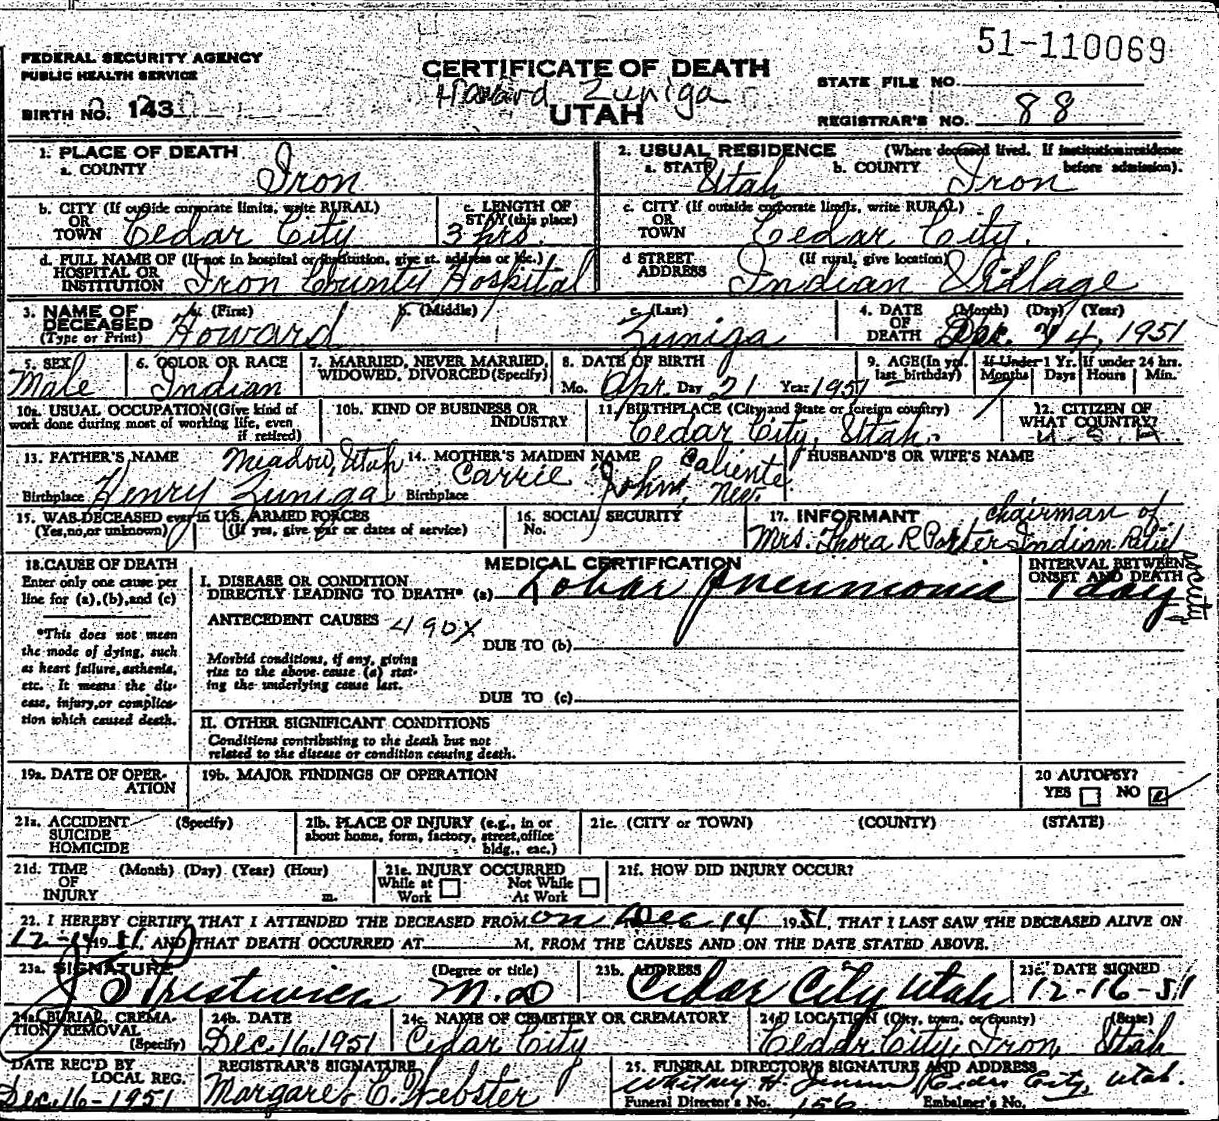 51-110069
FEDERAL SECURITY AGENCY
PUBLIC HEALTH SERVICE
CERTIFICATE OF DEATH
STATE FILE NO.
Howard Zuniga
BIRTH NO. 143
UTAH
REGISTRAR'S NO. 88
1. PLACE OF DEATH
a. COUNTY Iron
2. USUAL RESIDENCE (Where deceased lived. If institution: residence before admission).
a. STATE Utah b. COUNTY Iron
b. CITY (If outside corporate limits, write RURAL) OR TOWN Cedar City
c. LENGTH OF STAY (this place) 3 hrs.
c. CITY (If outside corporate limits, write RURAL) OR TOWN Cedar City.
d. FULL NAME OF (If not in hospital or institution, give st. address or loc.) HOSPITAL OR INSTITUTION Iron County Hospital
d STREET ADDRESS (If rural, give location) Indian Village
3. NAME OF DECEASED (Type or Print) a. (First) Howard b. (Middle) c. (Last) Zuniga
4. DATE OF DEATH (Month) (Day) (Year) Dec. 14, 1951
5. SEX Male
6. COLOR OR RACE Indian
7. MARRIED, NEVER MARRIED, WIDOWED, DIVORCED (Specify)
8. DATE OF BIRTH Mo. Apr. Day 21 Year 1951
9. AGE (In yrs. last birthday) If Under 1 Yr. Months 7 Days If under 24 hrs. Hours Min.
10a. USUAL OCCUPATION (Give kind of work done during most of working life, even if retired)
10b. KIND OF BUSINESS OR INDUSTRY
11. BIRTHPLACE (City and State or foreign country) Cedar City, Utah.
12. CITIZEN OF WHAT COUNTRY? U.S.A.
13. FATHER'S NAME Henry Zuniga
Birthplace Meadow, Utah
14. MOTHER'S MAIDEN NAME Carrie John
Birthplace Caliente, Nev.
HUSBAND'S OR WIFE'S NAME
15. WAS DECEASED ever in U.S. ARMED FORCES (Yes, no, or unknown) (If yes, give war or dates of service)
16. SOCIAL SECURITY No.
17. INFORMANT Mrs. Thora R. Porter chairman of Indian Relief Society
18. CAUSE OF DEATH
Enter only one cause per line for (a), (b), and (c)
*This does not mean the mode of dying, such as heart failure, asthenia, etc. It means the disease, injury, or complication which caused death.
MEDICAL CERTIFICATION
I. DISEASE OR CONDITION DIRECTLY LEADING TO DEATH* (a) Lobar Pneumonia
INTERVAL BETWEEN ONSET AND DEATH 1 day
ANTECEDENT CAUSES 490X
DUE TO (b)
Morbid conditions, if any, giving rise to the above cause (a) stating the underlying cause last.
DUE TO (c)
II. OTHER SIGNIFICANT CONDITIONS
Conditions contributing to the death but not related to the disease or condition causing death.
19a. DATE OF OPERATION
19b. MAJOR FINDINGS OF OPERATION
20 AUTOPSY? YES NO
21a. ACCIDENT SUICIDE HOMICIDE (Specify)
21b. PLACE OF INJURY (e.g., in or about home, form, factory, street, office bldg., etc.)
21c. (CITY or TOWN) (COUNTY) (STATE)
21d. TIME OF INJURY (Month) (Day) (Year) (Hour) m.
21e. INJURY OCCURRED While at Work Not While At Work
21f. HOW DID INJURY OCCUR?
22. I HEREBY CERTIFY THAT I ATTENDED THE DECEASED FROM on Dec 14 1951, THAT I LAST SAW THE DECEASED ALIVE ON
12-14 1951, AND THAT DEATH OCCURRED AT M, FROM THE CAUSES AND ON THE DATE STATED ABOVE.
23a. SIGNATURE (Degree or title) M.D
23b. ADDRESS Cedar City Utah
23c. DATE SIGNED 12-16-51
24a. BURIAL, CREMATION, REMOVAL (Specify)
24b. DATE Dec. 16, 1951
24c. NAME OF CEMETERY OR CREMATORY Cedar City
24d LOCATION (City, town, or county) (State) Cedar City, Iron, Utah
DATE REC'D BY LOCAL REG. Dec. 16-1951
REGISTRAR'S SIGNATURE Margaret C. Webster
25. FUNERAL DIRECTOR'S SIGNATURE AND ADDRESS Cedar City, Utah.
Funeral Director's No. 156 Embalmer's No.